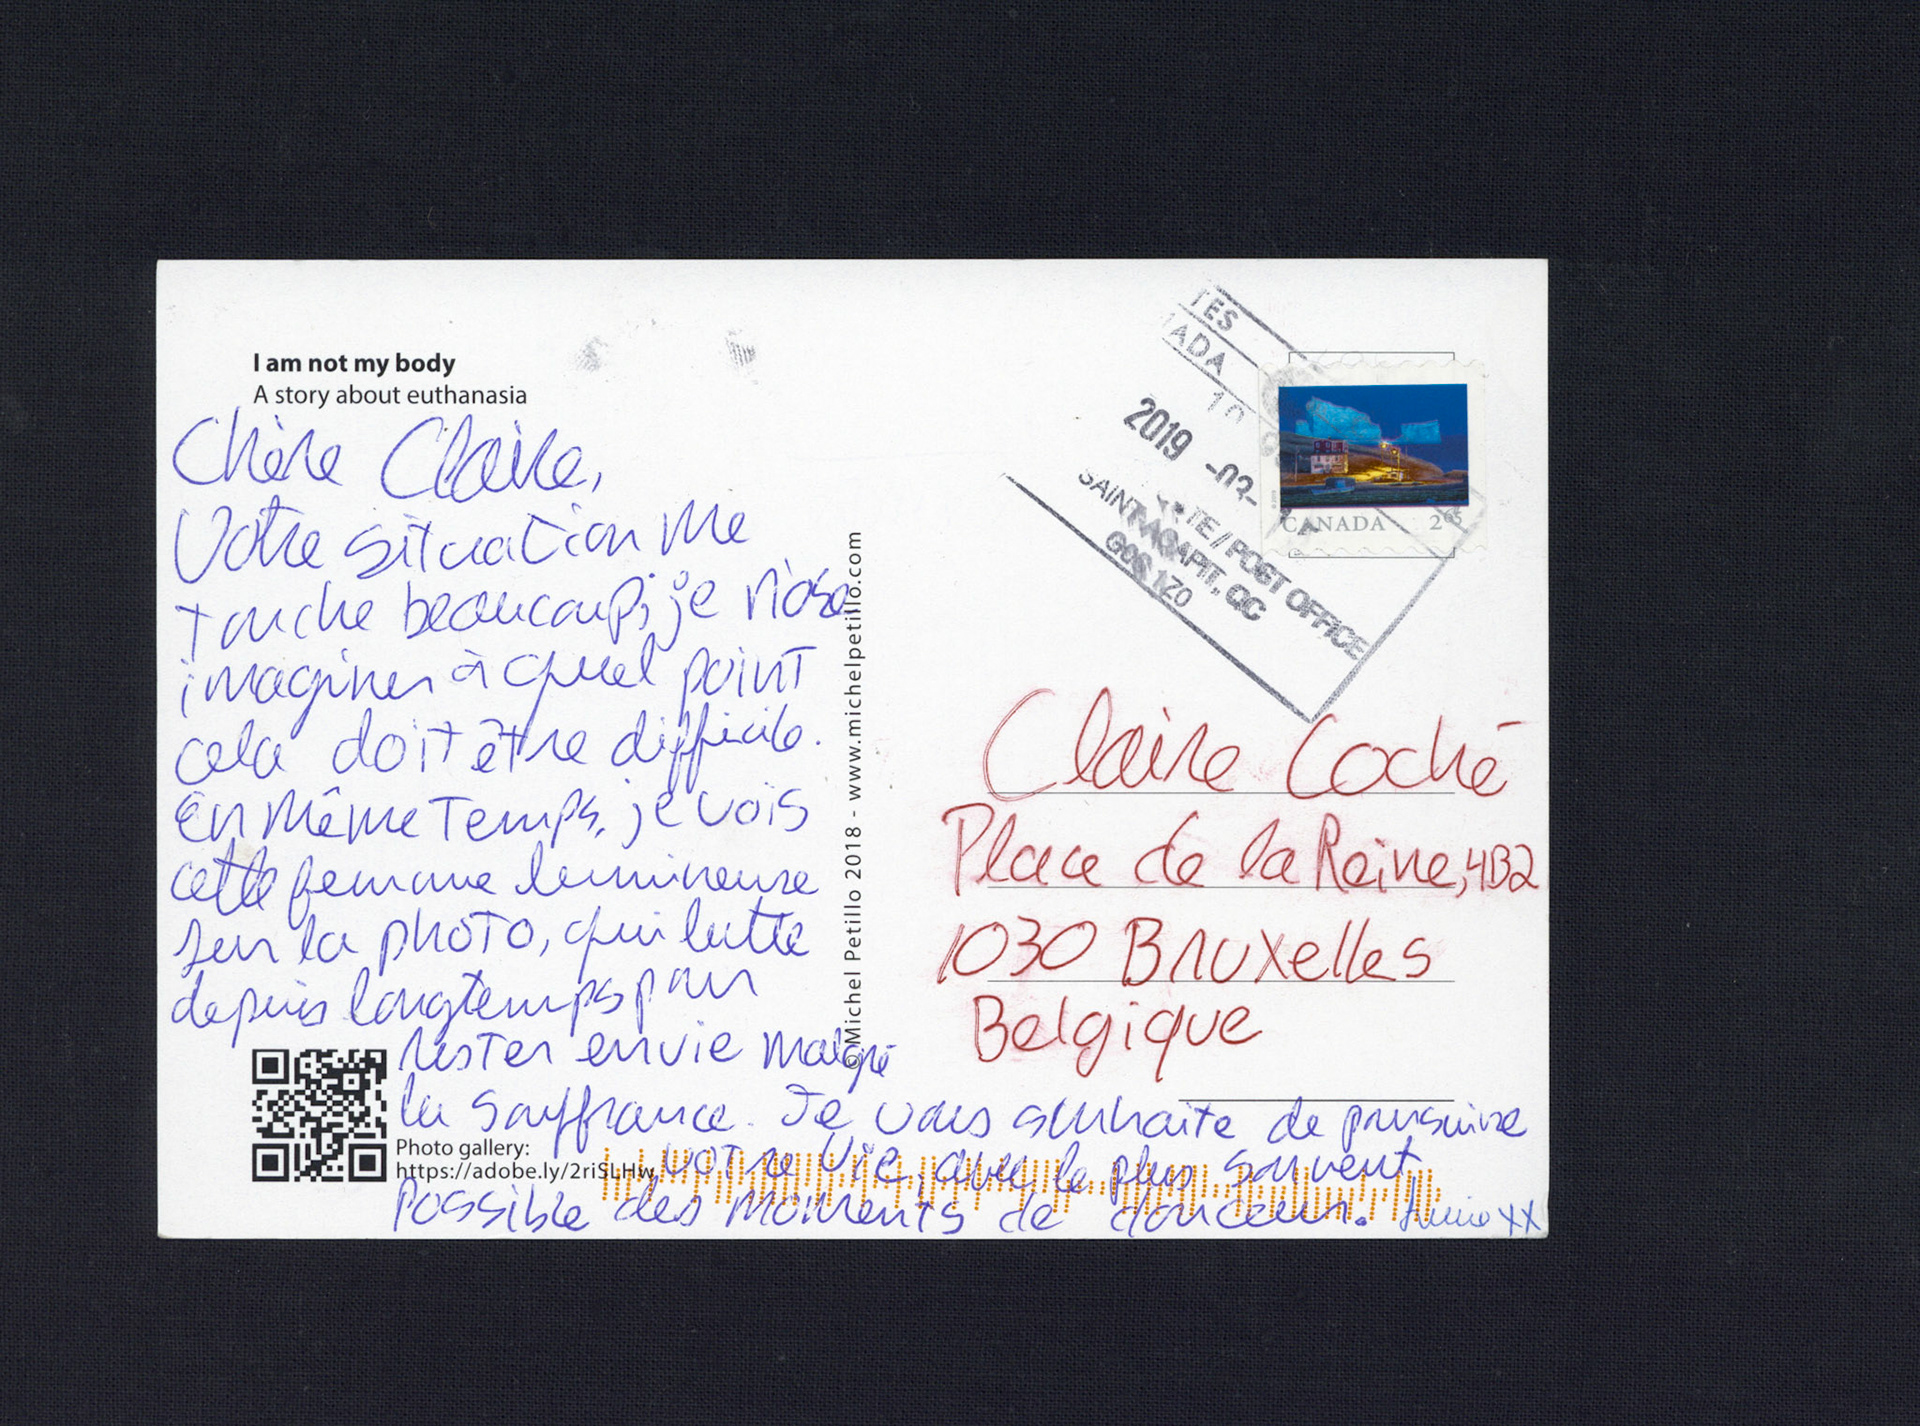 I am not my body
A story about euthanasia
Chère Claire,
Votre situation me
touche beaucoup, je n'ose
imaginer à quel point
cela doit être difficile.
En même temps, je vois
cette femme lumineuse
sur la photo, qui lutte
depuis longtemps pour
rester en vie malgré
la souffrance. Je vous souhaite de poursuivre
votre vie, avec le plus souvent
possible des moments de douceur. XX
Photo gallery:
https://adobe.ly/2riSLHw
© Michel Petillo 2018 - www.michelpetillo.com
TES
ADA
10
2019 -03-
TE / POST OFFICE
SAINT-AGAPIT, QC
G0S 1Z0
CANADA 265
Claire Coché
Place de la Reine, 4B2
1030 Bruxelles
Belgique